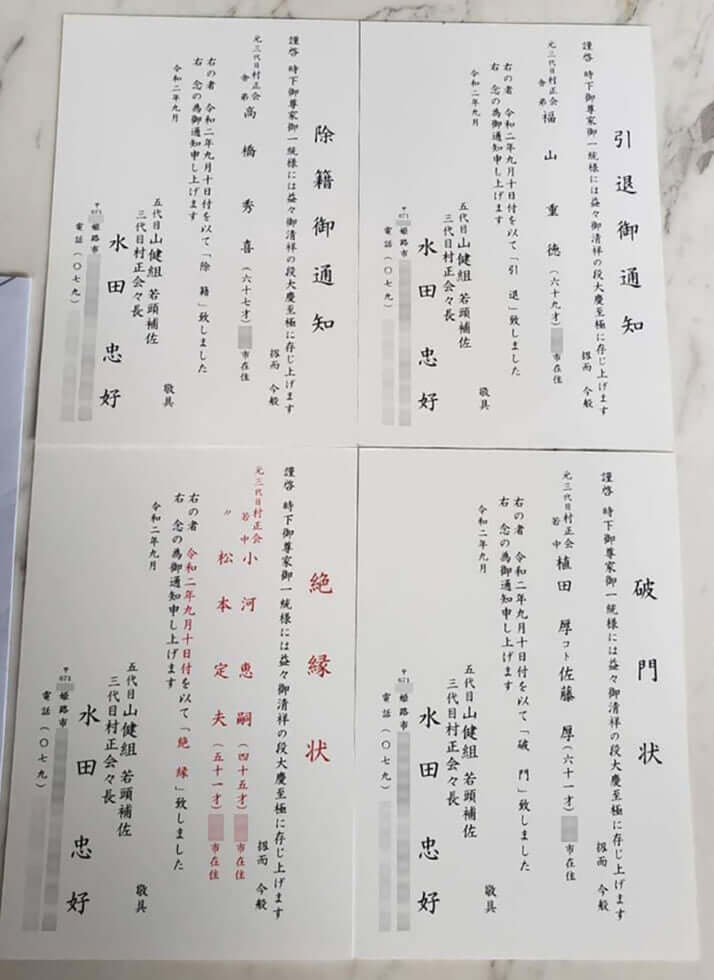 引退御通知
謹啓 時下御尊家御一統様には益々御清祥の段大慶至極に存じ上げます
扨而 今般
元三代目村正会
舎弟 福山重徳(六十九才) 市在住
右の者 令和二年九月十日付を以て「引退」致しました
右 念の為御通知申し上げます
令和二年九月
敬具
五代目山健組 若頭補佐
三代目村正会々長
水田忠好
〒671
姫路市
電話(〇七九)
除籍御通知
謹啓 時下御尊家御一統様には益々御清祥の段大慶至極に存じ上げます
扨而 今般
元三代目村正会
舎弟 高橋秀喜(六十七才) 市在住
右の者 令和二年九月十日付を以て「除籍」致しました
右 念の為御通知申し上げます
令和二年九月
敬具
五代目山健組 若頭補佐
三代目村正会々長
水田忠好
〒671
姫路市
電話(〇七九)
破門状
謹啓 時下御尊家御一統様には益々御清祥の段大慶至極に存じ上げます
扨而 今般
元三代目村正会
若中 植田厚コト佐藤厚(六十一才) 市在住
右の者 令和二年九月十日付を以て「破門」致しました
右 念の為御通知申し上げます
令和二年九月
敬具
五代目山健組 若頭補佐
三代目村正会々長
水田忠好
〒671
姫路市
電話(〇七九)
絶縁状
謹啓 時下御尊家御一統様には益々御清祥の段大慶至極に存じ上げます
扨而 今般
元三代目村正会
若中 小河恵嗣(四十五才) 市在住
〃 松本定夫(五十一才) 市在住
右の者 令和二年九月十日付を以て「絶縁」致しました
右 念の為御通知申し上げます
令和二年九月
敬具
五代目山健組 若頭補佐
三代目村正会々長
水田忠好
〒671
姫路市
電話(〇七九)